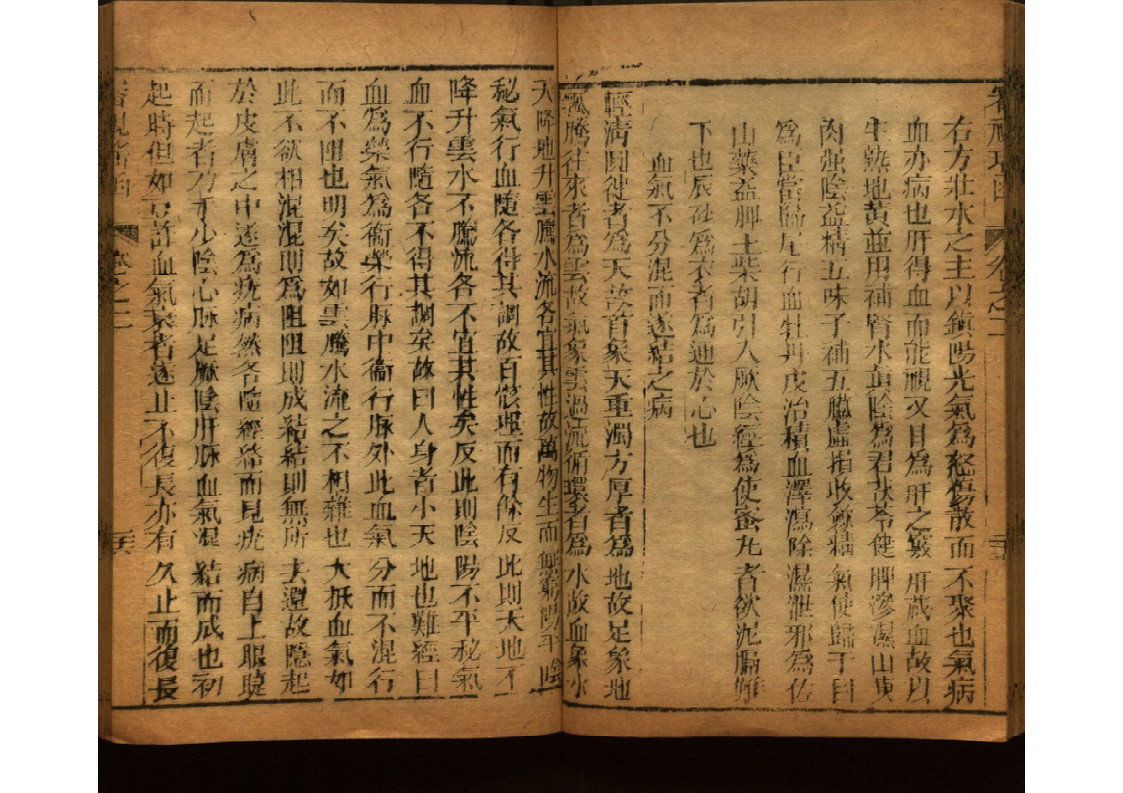 右方壯水之主以鎮陽光氣為怒傷散而不聚也氣病
血亦病也肝得血而能視又目為肝之竅肝藏血故以
生熟地黃並用補腎水黃陰為君茯苓健脾滲濕山萸
肉强陰益精五味子補五臟虛損收斂精氣使歸于目
為臣當歸尾行血牡丹皮治積血澤瀉除濕泄邪為佐
山藥益脾土柴胡引入厥陰經為使蜜丸者欲泥膈難
下也辰砂為衣者為通於心也
血氣不分混而遂結之病
輕清圓徤者為天故首象天重濁方厚者為地故足象地
飄騰往來者為雲故氣象雲過流循環者為水故血象水
天降地升雲騰水流各宜其性故萬物生而無窮陽平陰
秘氣行血隨各得其調故百骸理而有餘反此則天地不
降升雲水不騰流各不宜其性矣反此則陰陽不平秘氣
血不行隨各不得其調矣故曰人身者小天地也難經曰
血為榮氣為衞榮行脉中衞行脉外此血氣分而不混行
而不阻也明矣故如雲騰水流之不相雜也大抵血氣如
此不欲相混混則為阻阻則成結結則無所去還故隱起
於皮膚之中遂為疣病然各隨經絡而見疣病自上眼睫
而起者乃手少陰心脉足厥陰肝脉血氣混結而成也初
起時但如豆許血氣衰者遂止不復長亦有久止而復長
卷之二